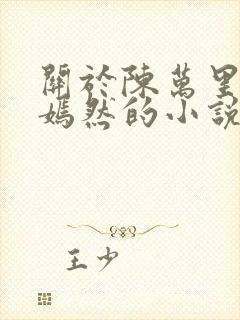 關於陳萬里
嫣然的小說
王少